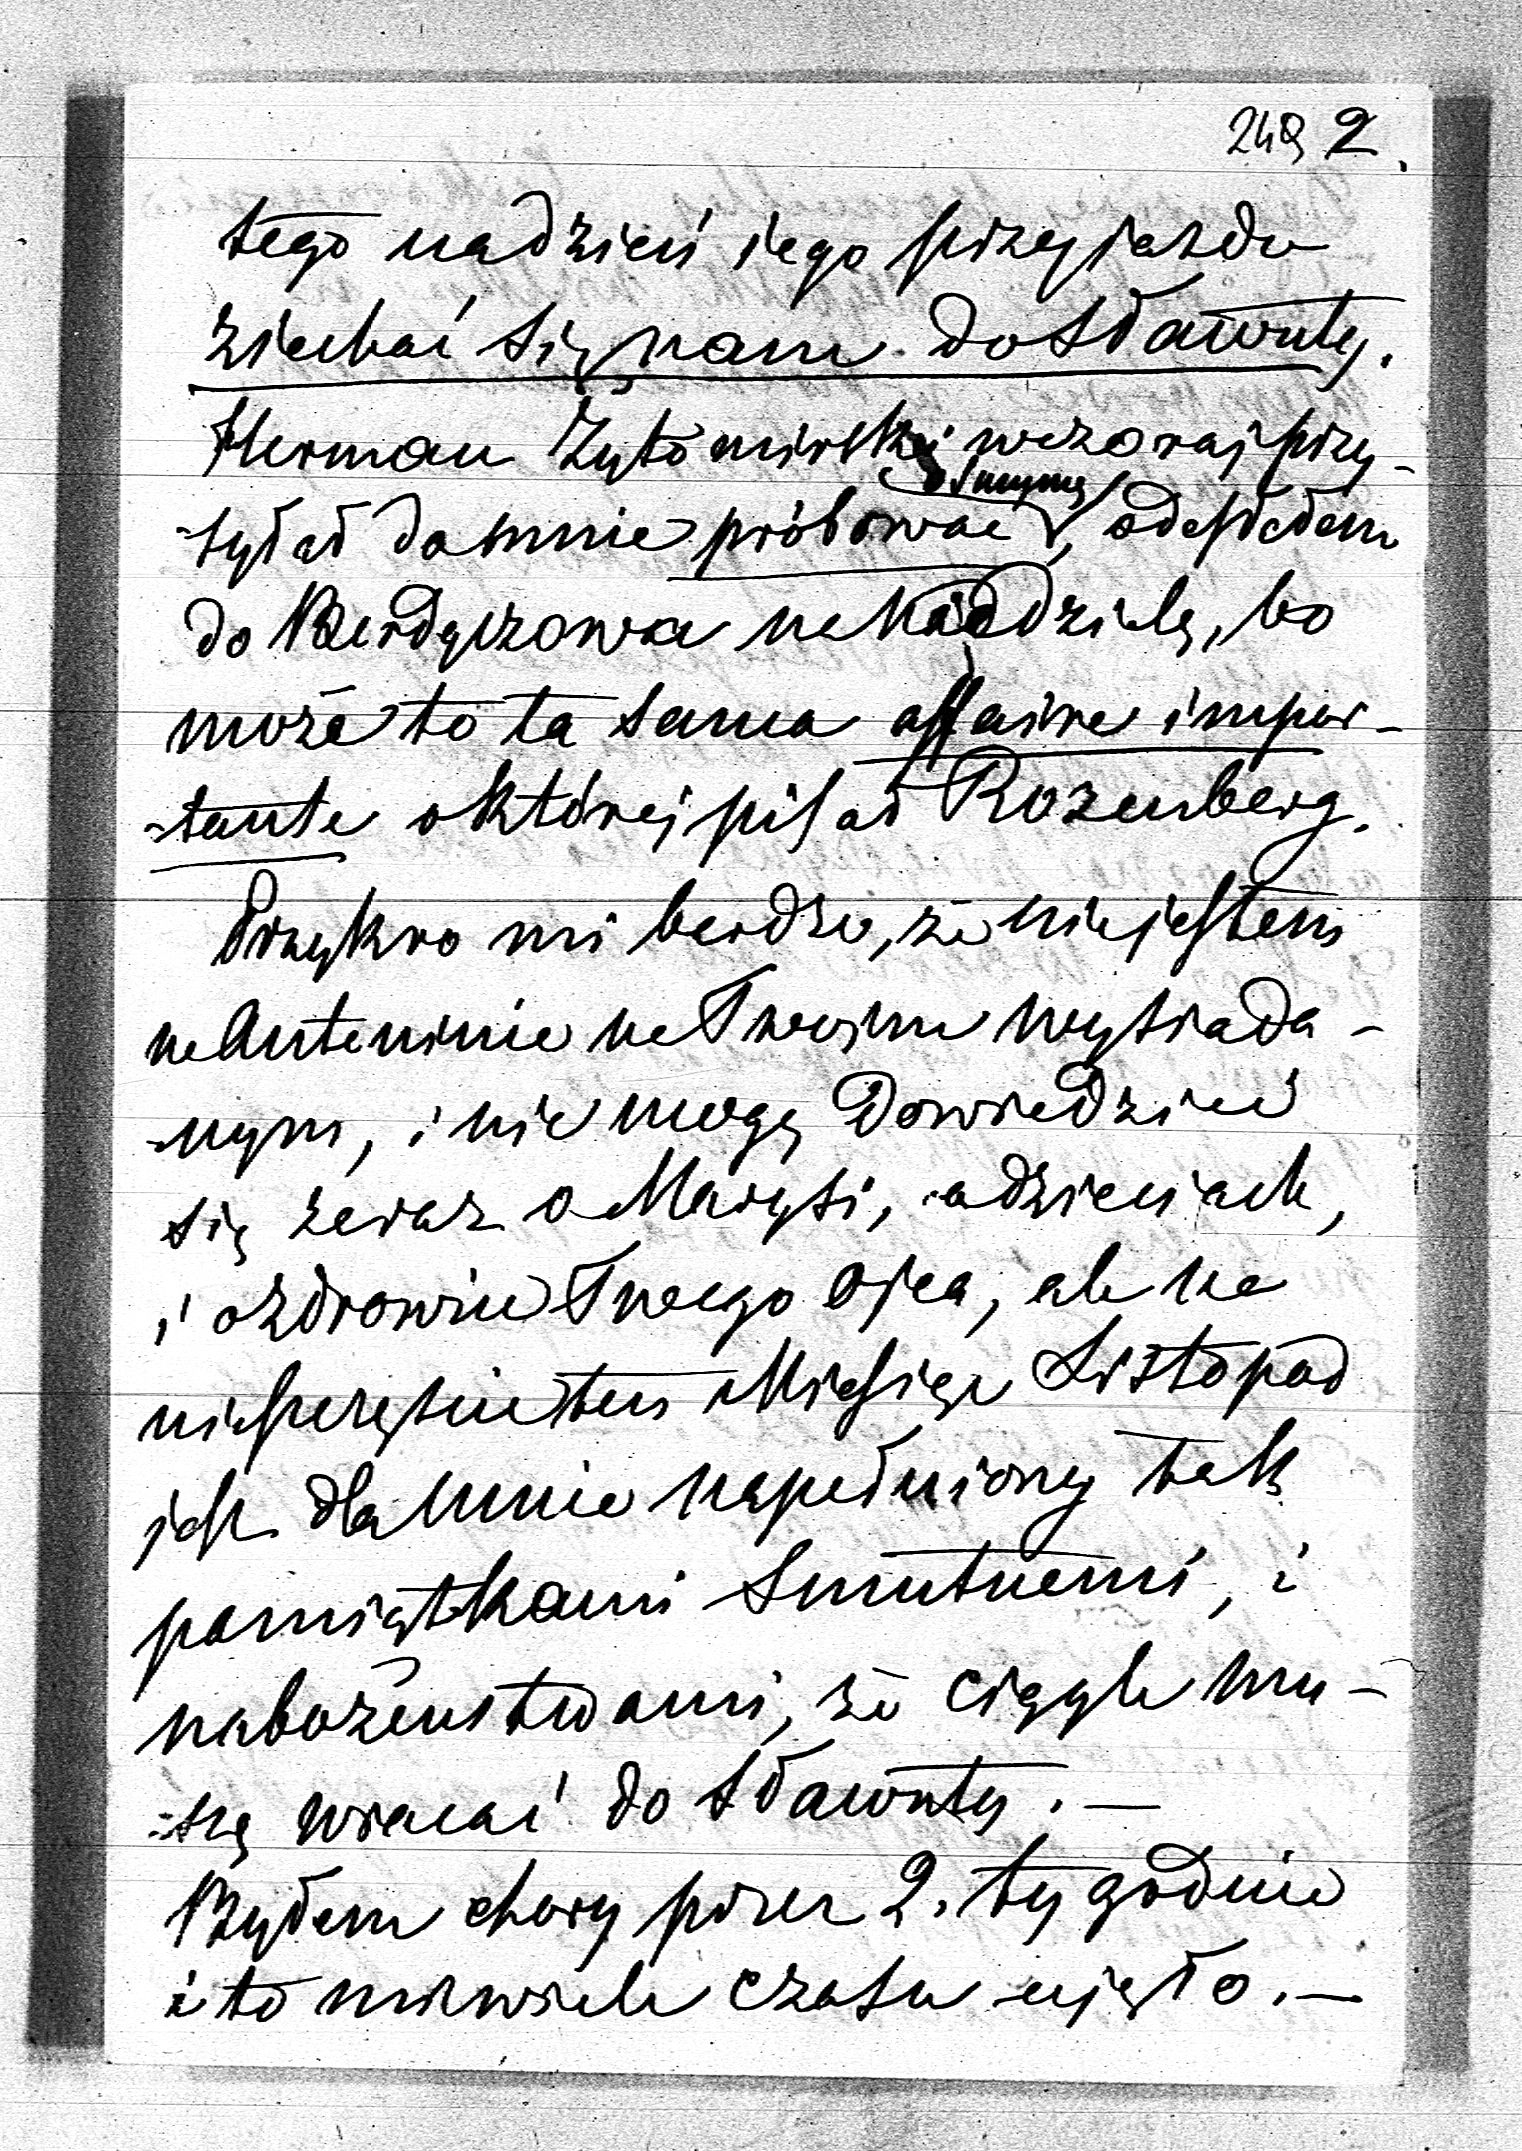 249 2.
tego na dzień jego przyjazdu
zjechać się nam do Sławuty.
Herman Żytomirski wczoraj przy-
-syłał do mnie próbować, odesłałem
do Berdyczowa na kądzielę, bo
może to ta sama affaire impor-
-tante o której pisał Rozenberg.
Przykro mi bardzo, że nie jestem
w Antoninie na Twojem wysiada-
-nym, i nie mogę dowiedzieć
się zaraz o Marysi, o dzieciach,
i o zdrowiu Twego Ojca, ale na
nieszczęście ten Miesiąc Listopad
jest dla mnie napełniony tak
pamiątkami smutnemi, i
nabożeństwami, że ciągle mu-
-szę wracać do Sławuty. —
Byłem chory przez 2. tygodnie
i to mi wiele czasu ujęło. —